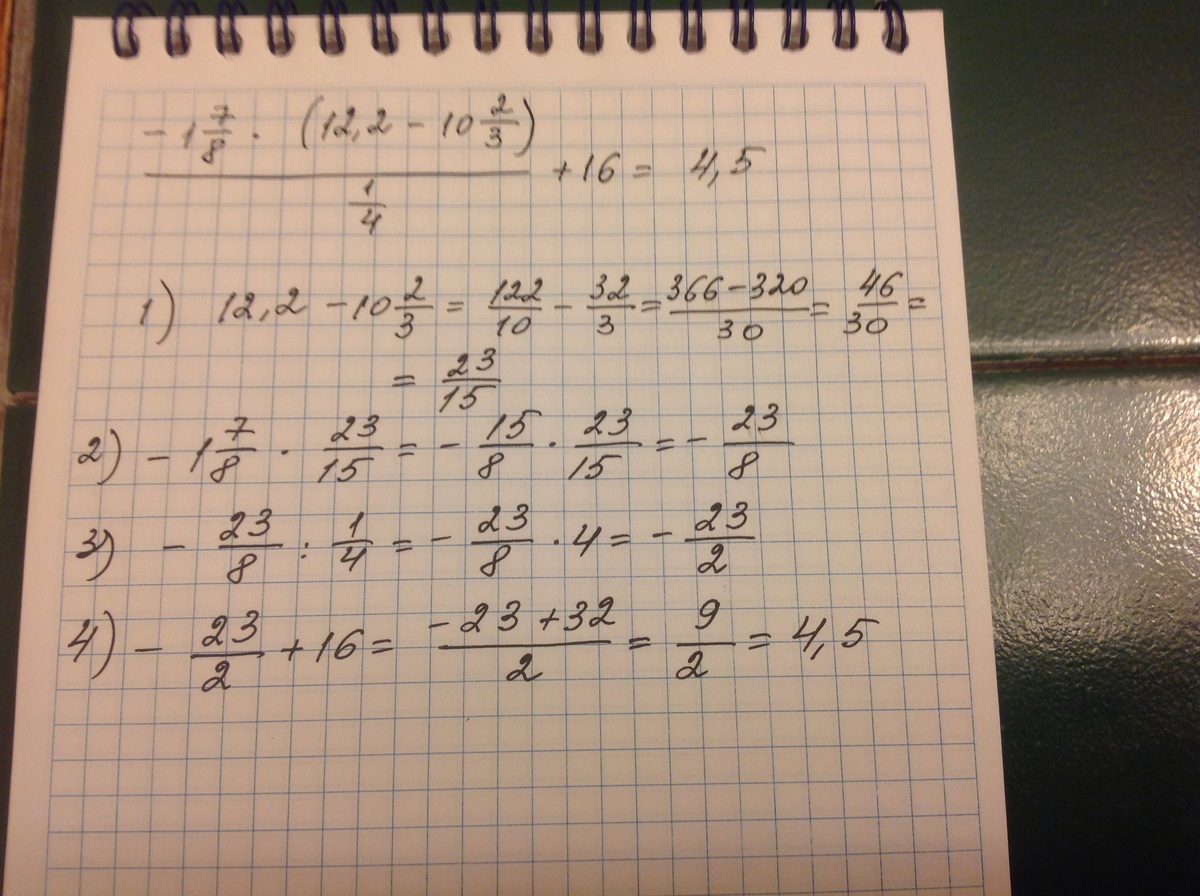 -1 7/8 · (12,2 - 10 2/3)
1/4
+16 = 4,5
1) 12,2 - 10 2/3 = 122/10 - 32/3 = 366-320/30 = 46/30 =
= 23/15
2) - 1 7/8 · 23/15 = - 15/8 · 23/15 = - 23/8
3) - 23/8 : 1/4 = - 23/8 · 4 = - 23/2
4) - 23/2 + 16 = -23+32/2 = 9/2 = 4,5